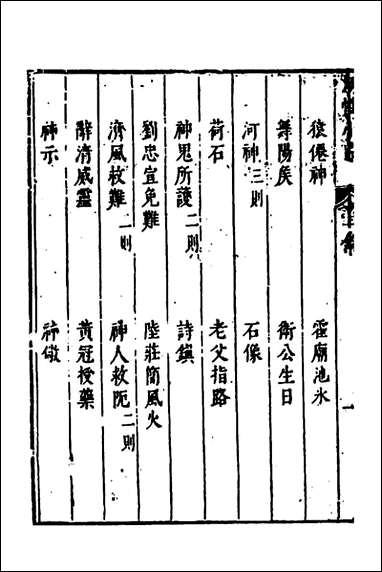 僊神　霍廟池水
舞陽矦　衛公生日
河神三則　石像
荷石　老父指路
神鬼所護二則　詩鎮
劉忠宣免難　陸莊簡風火
濟風救難二則　神人救阨二則
辭清威靈　黃冠授藥
神示　神儆